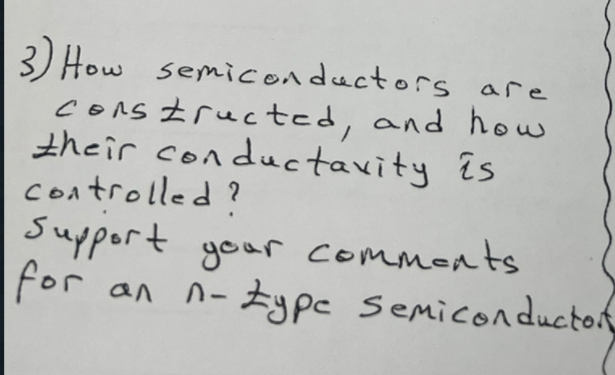 3) How semiconductors are
constructed, and how
their conductavity is
controlled?
Support your comments
for an n-type semiconductor